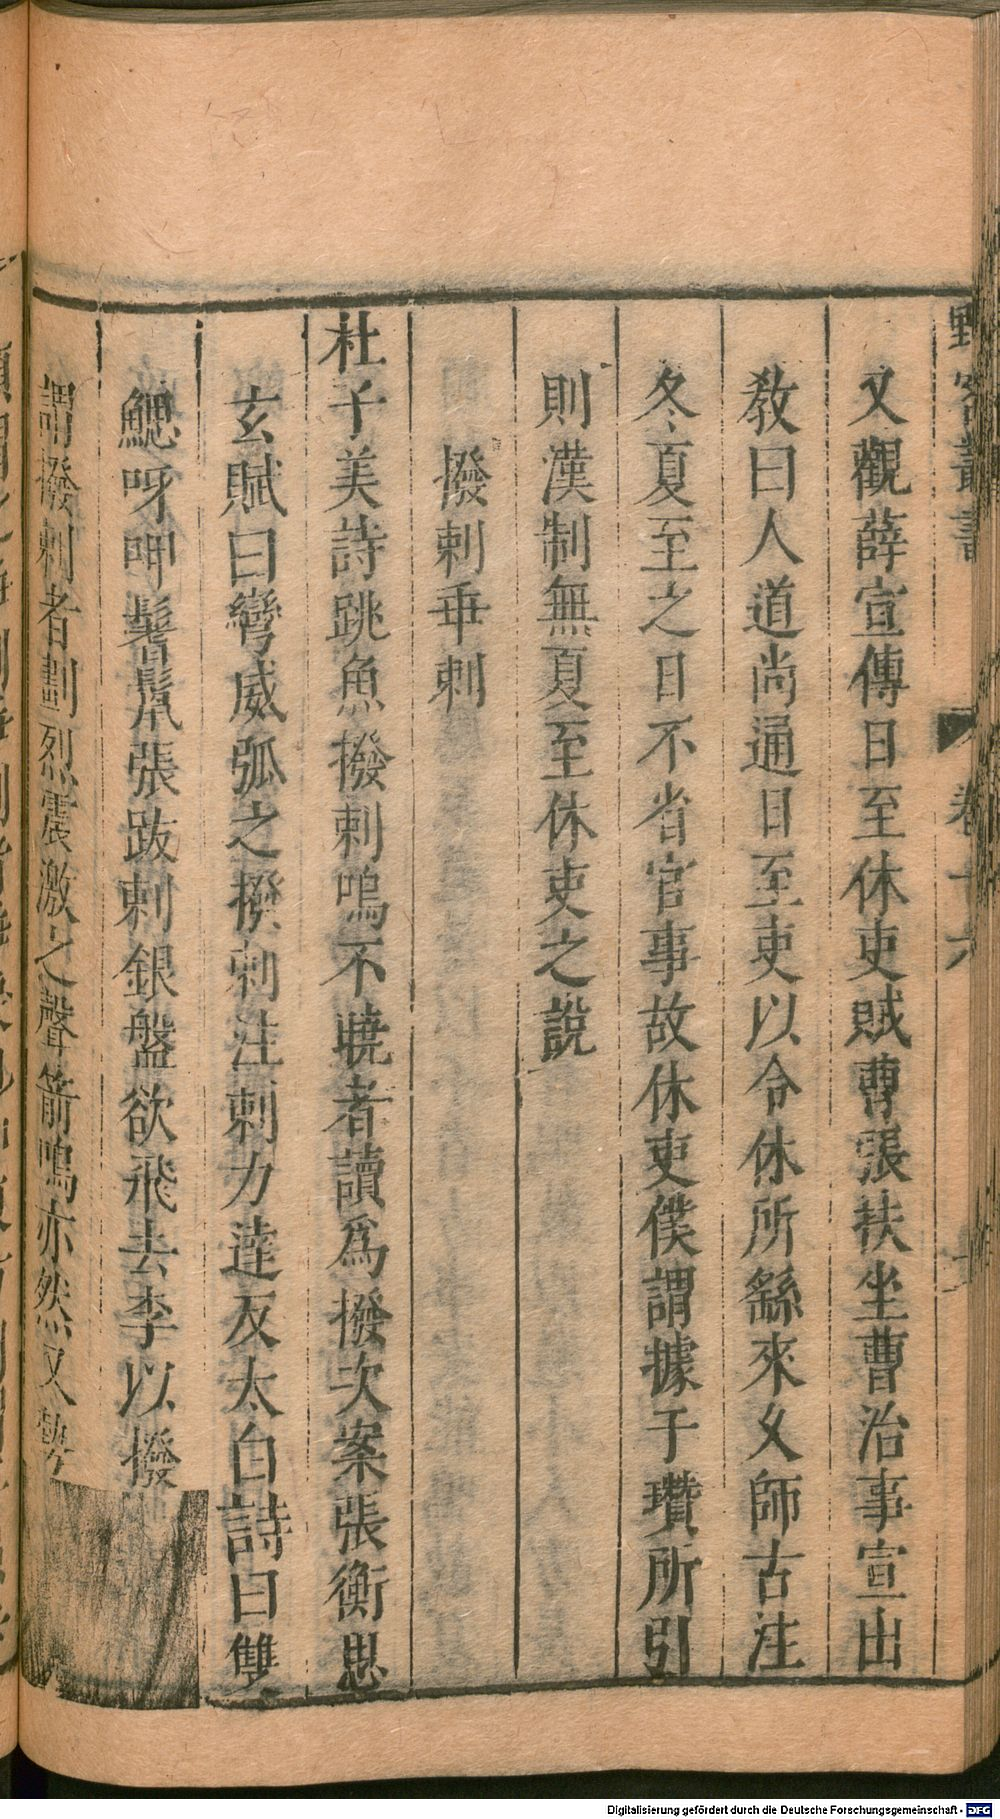 野客叢書 卷十六
又觀薛宣傳日至休吏賊曹張扶坐曹治事宣出
教曰人道尚通日至吏以令休所繇來久師古注
冬夏至之日不省官事故休吏僕謂據于瓚所引
則漢制無夏至休吏之說
撥剌乖剌
杜子美詩跳魚撥剌鳴不曉者讀爲撥次案張衡思
玄賦曰彎威弧之撥剌注剌力達反太白詩曰雙
鰓呀呷鬐鬛張跋剌銀盤欲飛去李以撥
謂撥剌者劃烈震激之聲箭鳴亦然又勢
Digitalisierung gefördert durch die Deutsche Forschungsgemeinschaft - DFG